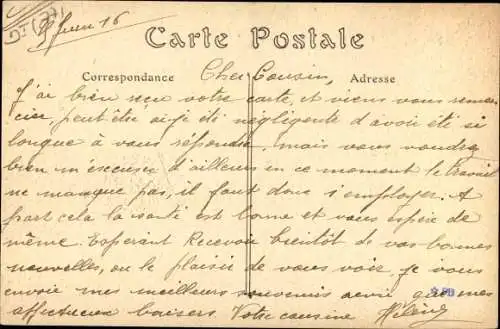 Juin 16
Carte Postale
Correspondance Cher Cousin, Adresse
J'ai bien reçu votre carte, et viens vous remer-
cier, peut être ai-je été negligente d'avoir été si
longue à vous répondre, mais vous voudrez
bien m'excuser d'ailleurs en ce moment le travail
ne manque pas, il faut donc s'employer. A
part cela la santé est bonne et vous espère de
même. Esperant Recevoir bientôt de vos bonnes
nouvelles, ou le plaisir de vous voir, je vous
envoie mes meilleurs souvenirs avec mes
affectueux baisers. Votre cousine Hélène